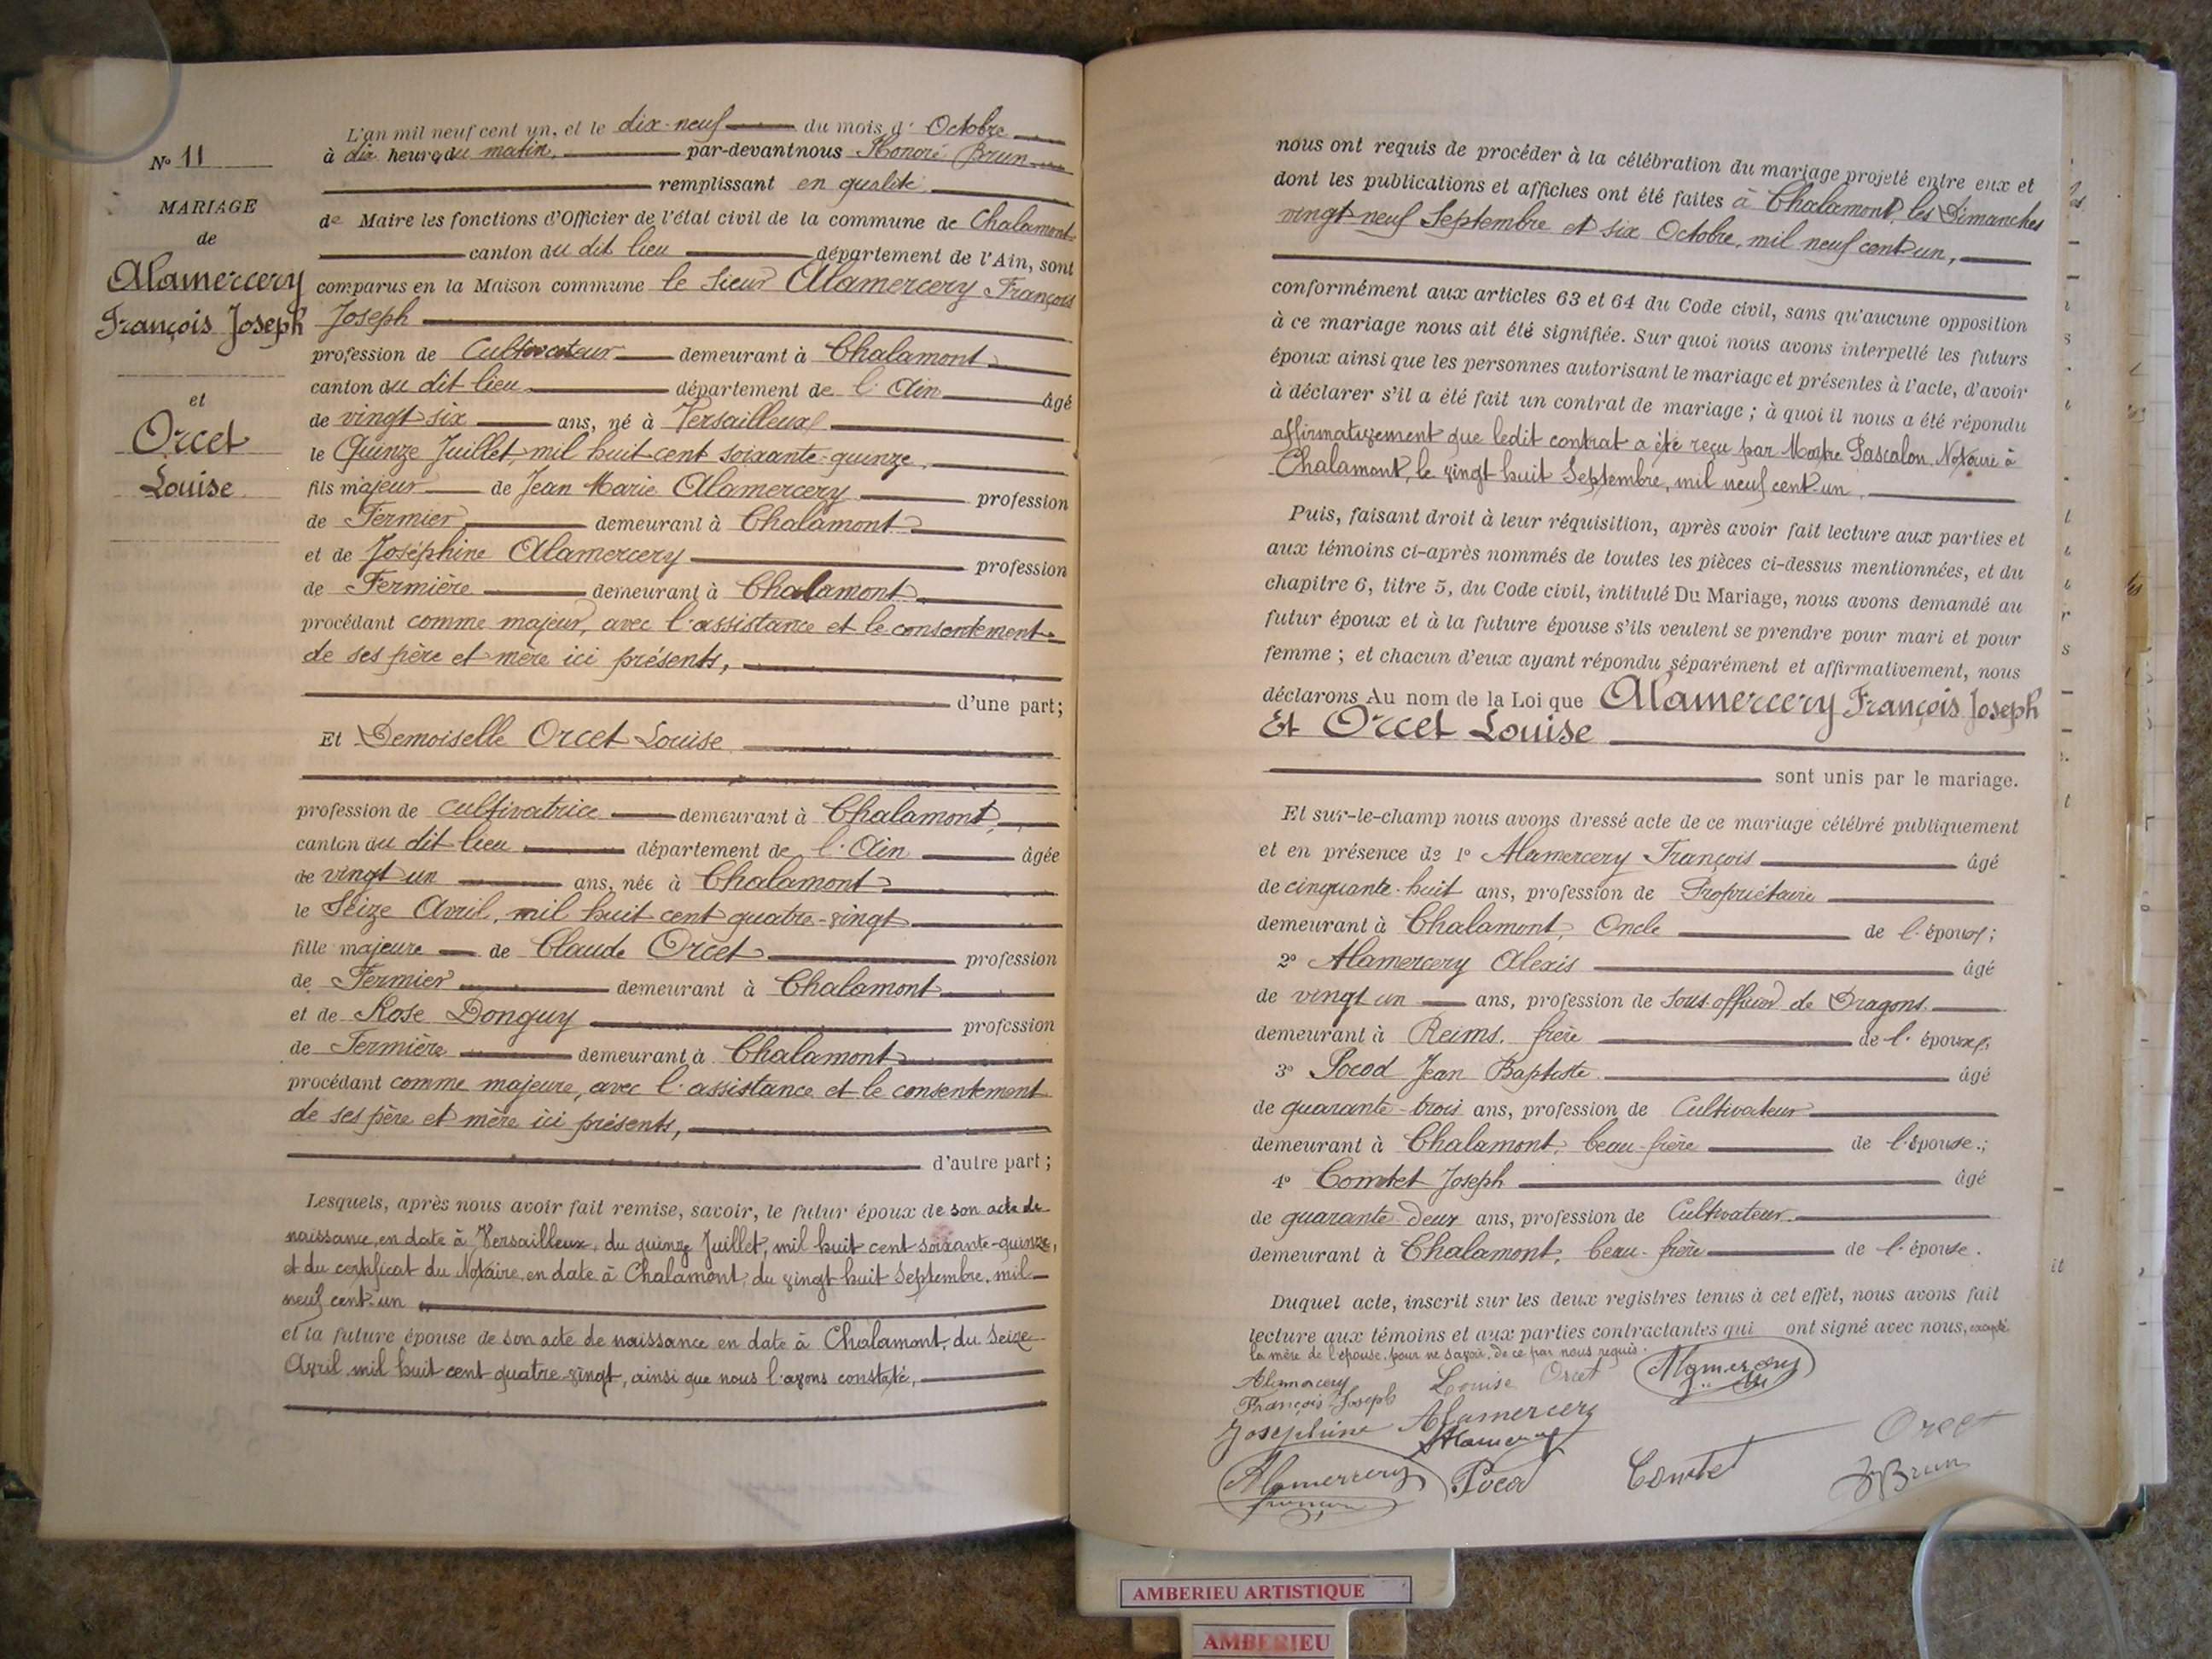 L'an mil neuf cent un, et le dix-neuf du mois d' Octobre
N° 11
à dix heures du matin, par-devant nous Honoré Brun
remplissant en qualité
MARIAGE
de
de Maire les fonctions d'Officier de l'état civil de la commune de Chalamont
canton du dit lieu département de l'Ain, sont
Alamercery
François Joseph
comparus en la Maison commune le Sieur Alamercery François
Joseph
profession de Cultivateur demeurant à Chalamont
canton du dit lieu département de l'Ain âgé
et
Orcet
Louise
de vingt six ans, né à Versailleux
le Quinze Juillet, mil huit cent soixante-quinze,
fils majeur de Jean Marie Alamercery profession
de Fermier demeurant à Chalamont
et de Joséphine Alamercery profession
de Fermière demeurant à Chalamont
procédant comme majeur, avec l'assistance et le consentement
de ses père et mère ici présents,
d'une part;
Et Demoiselle Orcet Louise
profession de cultivatrice demeurant à Chalamont,
canton du dit lieu département de l'Ain âgée
de vingt un ans, née à Chalamont
le Seize Avril, mil huit cent quatre-vingt
fille majeure de Claude Orcet profession
de Fermier demeurant à Chalamont
et de Rose Donguy profession
de Fermière demeurant à Chalamont
procédant comme majeure, avec l'assistance et le consentement
de ses père et mère ici présents,
d'autre part;
Lesquels, après nous avoir fait remise, savoir, le futur époux de son acte de
naissance, en date à Versailleux, du quinze Juillet, mil huit cent soixante-quinze,
et du certificat du Notaire, en date à Chalamont, du vingt huit Septembre, mil
neuf cent-un
et la future épouse de son acte de naissance en date à Chalamont, du Seize
Avril mil huit cent quatre vingt, ainsi que nous l'avons constaté,
nous ont requis de procéder à la célébration du mariage projeté entre eux et
dont les publications et affiches ont été faites à Chalamont, les Dimanches
vingt-neuf Septembre et six Octobre, mil neuf cent un,
conformément aux articles 63 et 64 du Code civil, sans qu'aucune opposition
à ce mariage nous ait été signifiée. Sur quoi nous avons interpellé les futurs
époux ainsi que les personnes autorisant le mariage et présentes à l'acte, d'avoir
à déclarer s'il a été fait un contrat de mariage; à quoi il nous a été répondu
affirmativement que ledit contrat a été reçu par Maître Pascalon, Notaire à
Chalamont, le vingt huit Septembre, mil neuf cent-un.
Puis, faisant droit à leur réquisition, après avoir fait lecture aux parties et
aux témoins ci-après nommés de toutes les pièces ci-dessus mentionnées, et du
chapitre 6, titre 5, du Code civil, intitulé Du Mariage, nous avons demandé au
futur époux et à la future épouse s'ils veulent se prendre pour mari et pour
femme; et chacun d'eux ayant répondu séparément et affirmativement, nous
déclarons Au nom de la Loi que Alamercery François Joseph
Et Orcet Louise
sont unis par le mariage.
Et sur-le-champ nous avons dressé acte de ce mariage célébré publiquement
et en présence de 1° Alamercery François âgé
de cinquante-huit ans, profession de Propriétaire
demeurant à Chalamont, Oncle de l'époux;
2° Alamercery Alexis âgé
de vingt un ans, profession de Sous-officier de Dragons
demeurant à Reims, frère de l'époux;
3° Pocod Jean Baptiste âgé
de quarante-trois ans, profession de Cultivateur
demeurant à Chalamont, beau-frère de l'épouse;
4° Comtet Joseph âgé
de quarante-deux ans, profession de Cultivateur
demeurant à Chalamont, beau-frère de l'épouse.
Duquel acte, inscrit sur les deux registres tenus à cet effet, nous avons fait
lecture aux témoins et aux parties contractantes qui ont signé avec nous, excepté
la mère de l'épouse, pour ne savoir, de ce par nous requis.
Alamercery
François Joseph
Louise Orcet
Alamercery
Joséphine Alamercery
Alamercery
Orcet
Alamercery
François
Pocod
Comtet
H Brun
AMBERIEU ARTISTIQUE
AMBERIEU